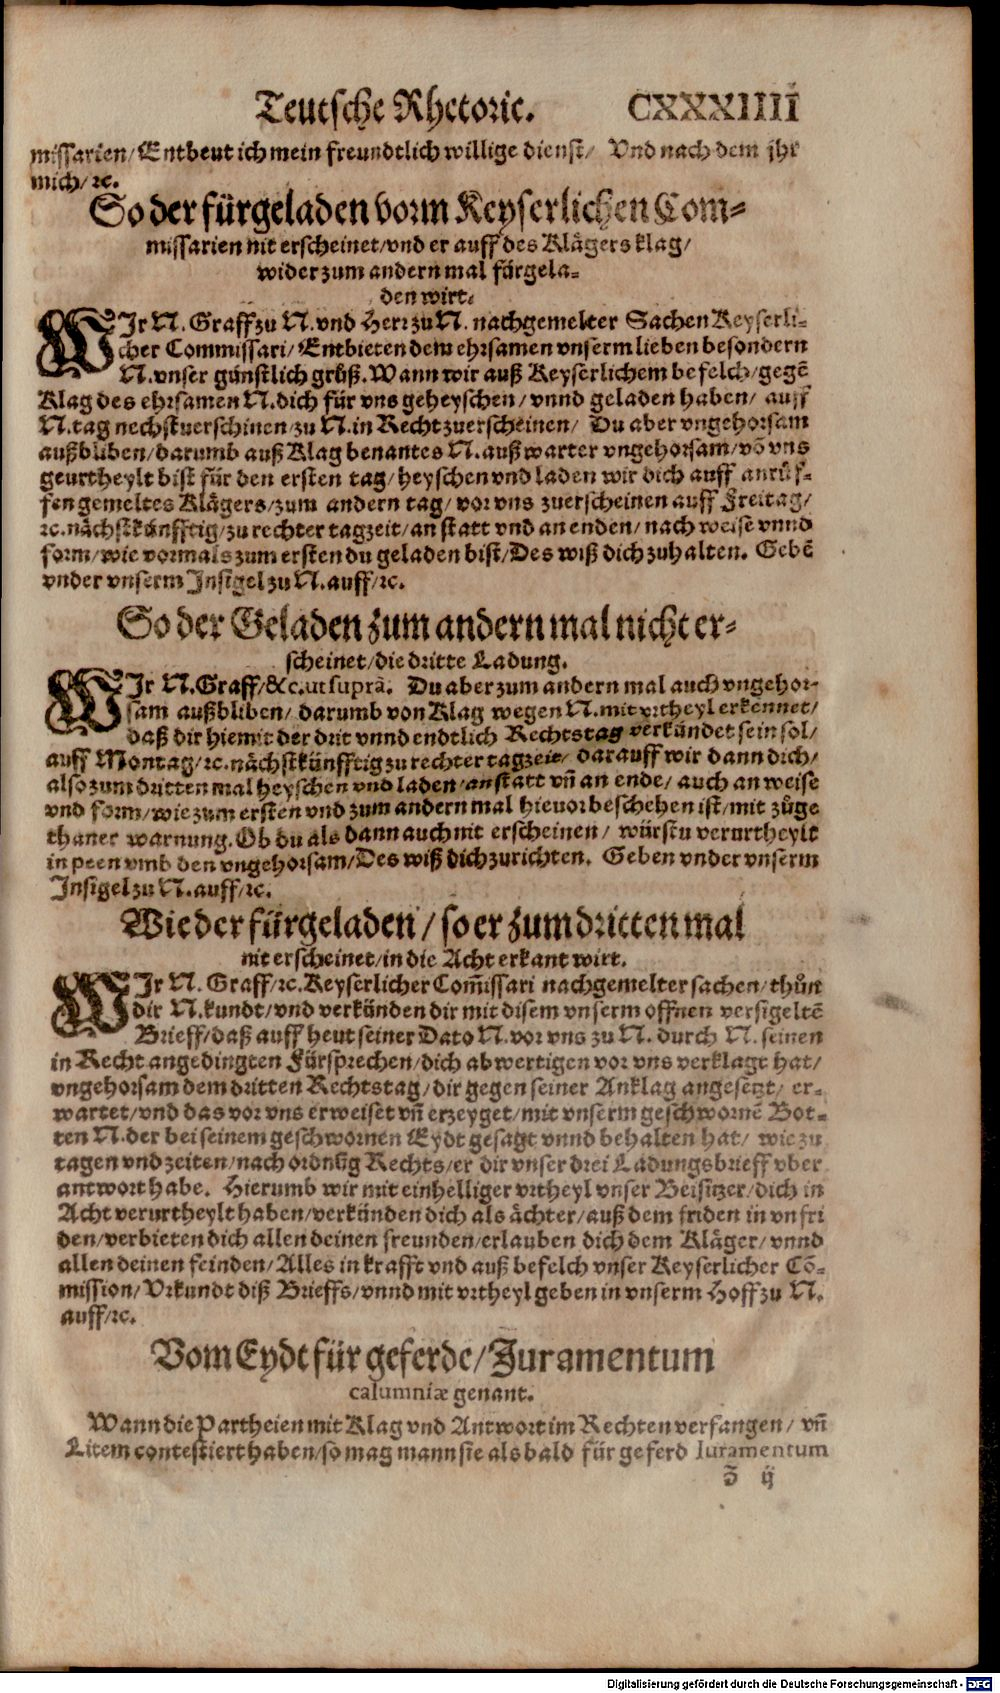 Teutsche Rhetoric. CXXXIIII
missarien/Entbeut ich mein freundtlich willige dienst/ Vnd nach dem jhr
mich/ꝛc.
So der fürgeladen vorm Keyserlichen Com-
missarien nit erscheinet/vnd er auff des Klägers klag/
wider zum andern mal fürgela-
den wirt.
WIr N. Graff zu N. vnd Herr zu N. nachgemelter Sachen Keyserli-
cher Commissari/Entbieten dem ehrsamen vnserm lieben besondern
N. vnser günstlich grůß. Wann wir auß Keyserlichem befelch/gegẽ
Klag des ehrsamen N. dich für vns geheyschen/vnnd geladen haben/ auff
N. tag nechstuerschinen/zu N. in Recht zuerscheinen/ Du aber vngehorsam
außbliben/darumb auß Klag benantes N. außwarter vngehorsam/võ vns
geurtheylt bist für den ersten tag/heyschen vnd laden wir dich auff anrůf-
fen gemeltes Klägers/zum andern tag/vor vns zuerscheinen auff Freitag/
ꝛc. nächstkünfftig/zu rechter tagzeit/an statt vnd an enden/nach weise vnnd
form/wie vormals zum ersten du geladen bist/Des wiß dich zuhalten. Gebẽ
vnder vnserm Insigel zu N. auff/ꝛc.
So der Geladen zum andern mal nicht er-
scheinet/die dritte Ladung.
WIr N. Graff/&c. ut suprà. Du aber zum andern mal auch vngehor-
sam außbliben/darumb von Klag wegen N. mit vrtheyl erkennet/
daß dir hiemit der drit vnnd endtlich Rechtstag verkündet sein sol/
auff Montag/ꝛc. nächstkünfftig zu rechter tagzeit/ darauff wir dann dich/
also zum dritten mal heyschen vnd laden/anstatt vñ an ende/auch an weise
vnd form/wie zum ersten vnd zum andern mal hieuor beschehen ist/mit züge
thaner warnung. Ob du als dann auch nit erscheinen/ würstu verurtheylt
in peen vmb den vngehorsam/Des wiß dich zurichten. Geben vnder vnserm
Insigel zu N. auff/ꝛc.
Wie der fürgeladen/so er zum dritten mal
nit erscheinet/in die Acht erkant wirt.
WIr N. Graff/ꝛc. Keyserlicher Com̃issari nachgemelter sachen/thůn
dir N. kundt/vnd verkünden dir mit disem vnserm offnen versigeltẽ
Brieff/daß auff heut seiner Dato N. vor vns zu N. durch N. seinen
in Recht angedingten Fürsprechen/dich abwertigen vor vns verklagt hat/
vngehorsam dem dritten Rechtstag/dir gegen seiner Anklag angesetzt/ er-
wartet/vnd das vor vns erweiset vñ erzeyget/mit vnserm geschwornẽ Bot-
ten N. der bei seinem geschwornen Eydt gesagt vnnd behalten hat/ wie zu
tagen vnd zeiten/nach ordnũg Rechts/er dir vnser drei Ladungsbrieff vber
antwort habe. Hierumb wir mit einhelliger vrtheyl vnser Beisitzer/dich in
Acht verurtheylt haben/verkünden dich als ächter/auß dem friden in vnfri
den/verbieten dich allen deinen freunden/erlauben dich dem Kläger/vnnd
allen deinen feinden/Alles in krafft vnd auß befelch vnser Keyserlicher Cõ-
mission/Vrkundt diß Brieffs/vnnd mit vrtheyl geben in vnserm Hoff zu N.
auff/ꝛc.
Vom Eydt für geferde/Juramentum
calumniæ genant.
Wann die Partheien mit Klag vnd Antwort im Rechten verfangen/ vñ
Litem contestiert haben/so mag mann sie als bald für geferd Iuramentum
Z ij
Digitalisierung gefördert durch die Deutsche Forschungsgemeinschaft - DFG